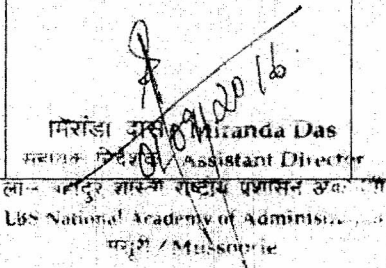 मिरांडा दास / Miranda Das
सहायक निदेशक / Assistant Director
लाल बहादुर शास्त्री राष्ट्रीय प्रशासन अकादमी
LBS National Academy of Administration
मसूरी / Mussoorie